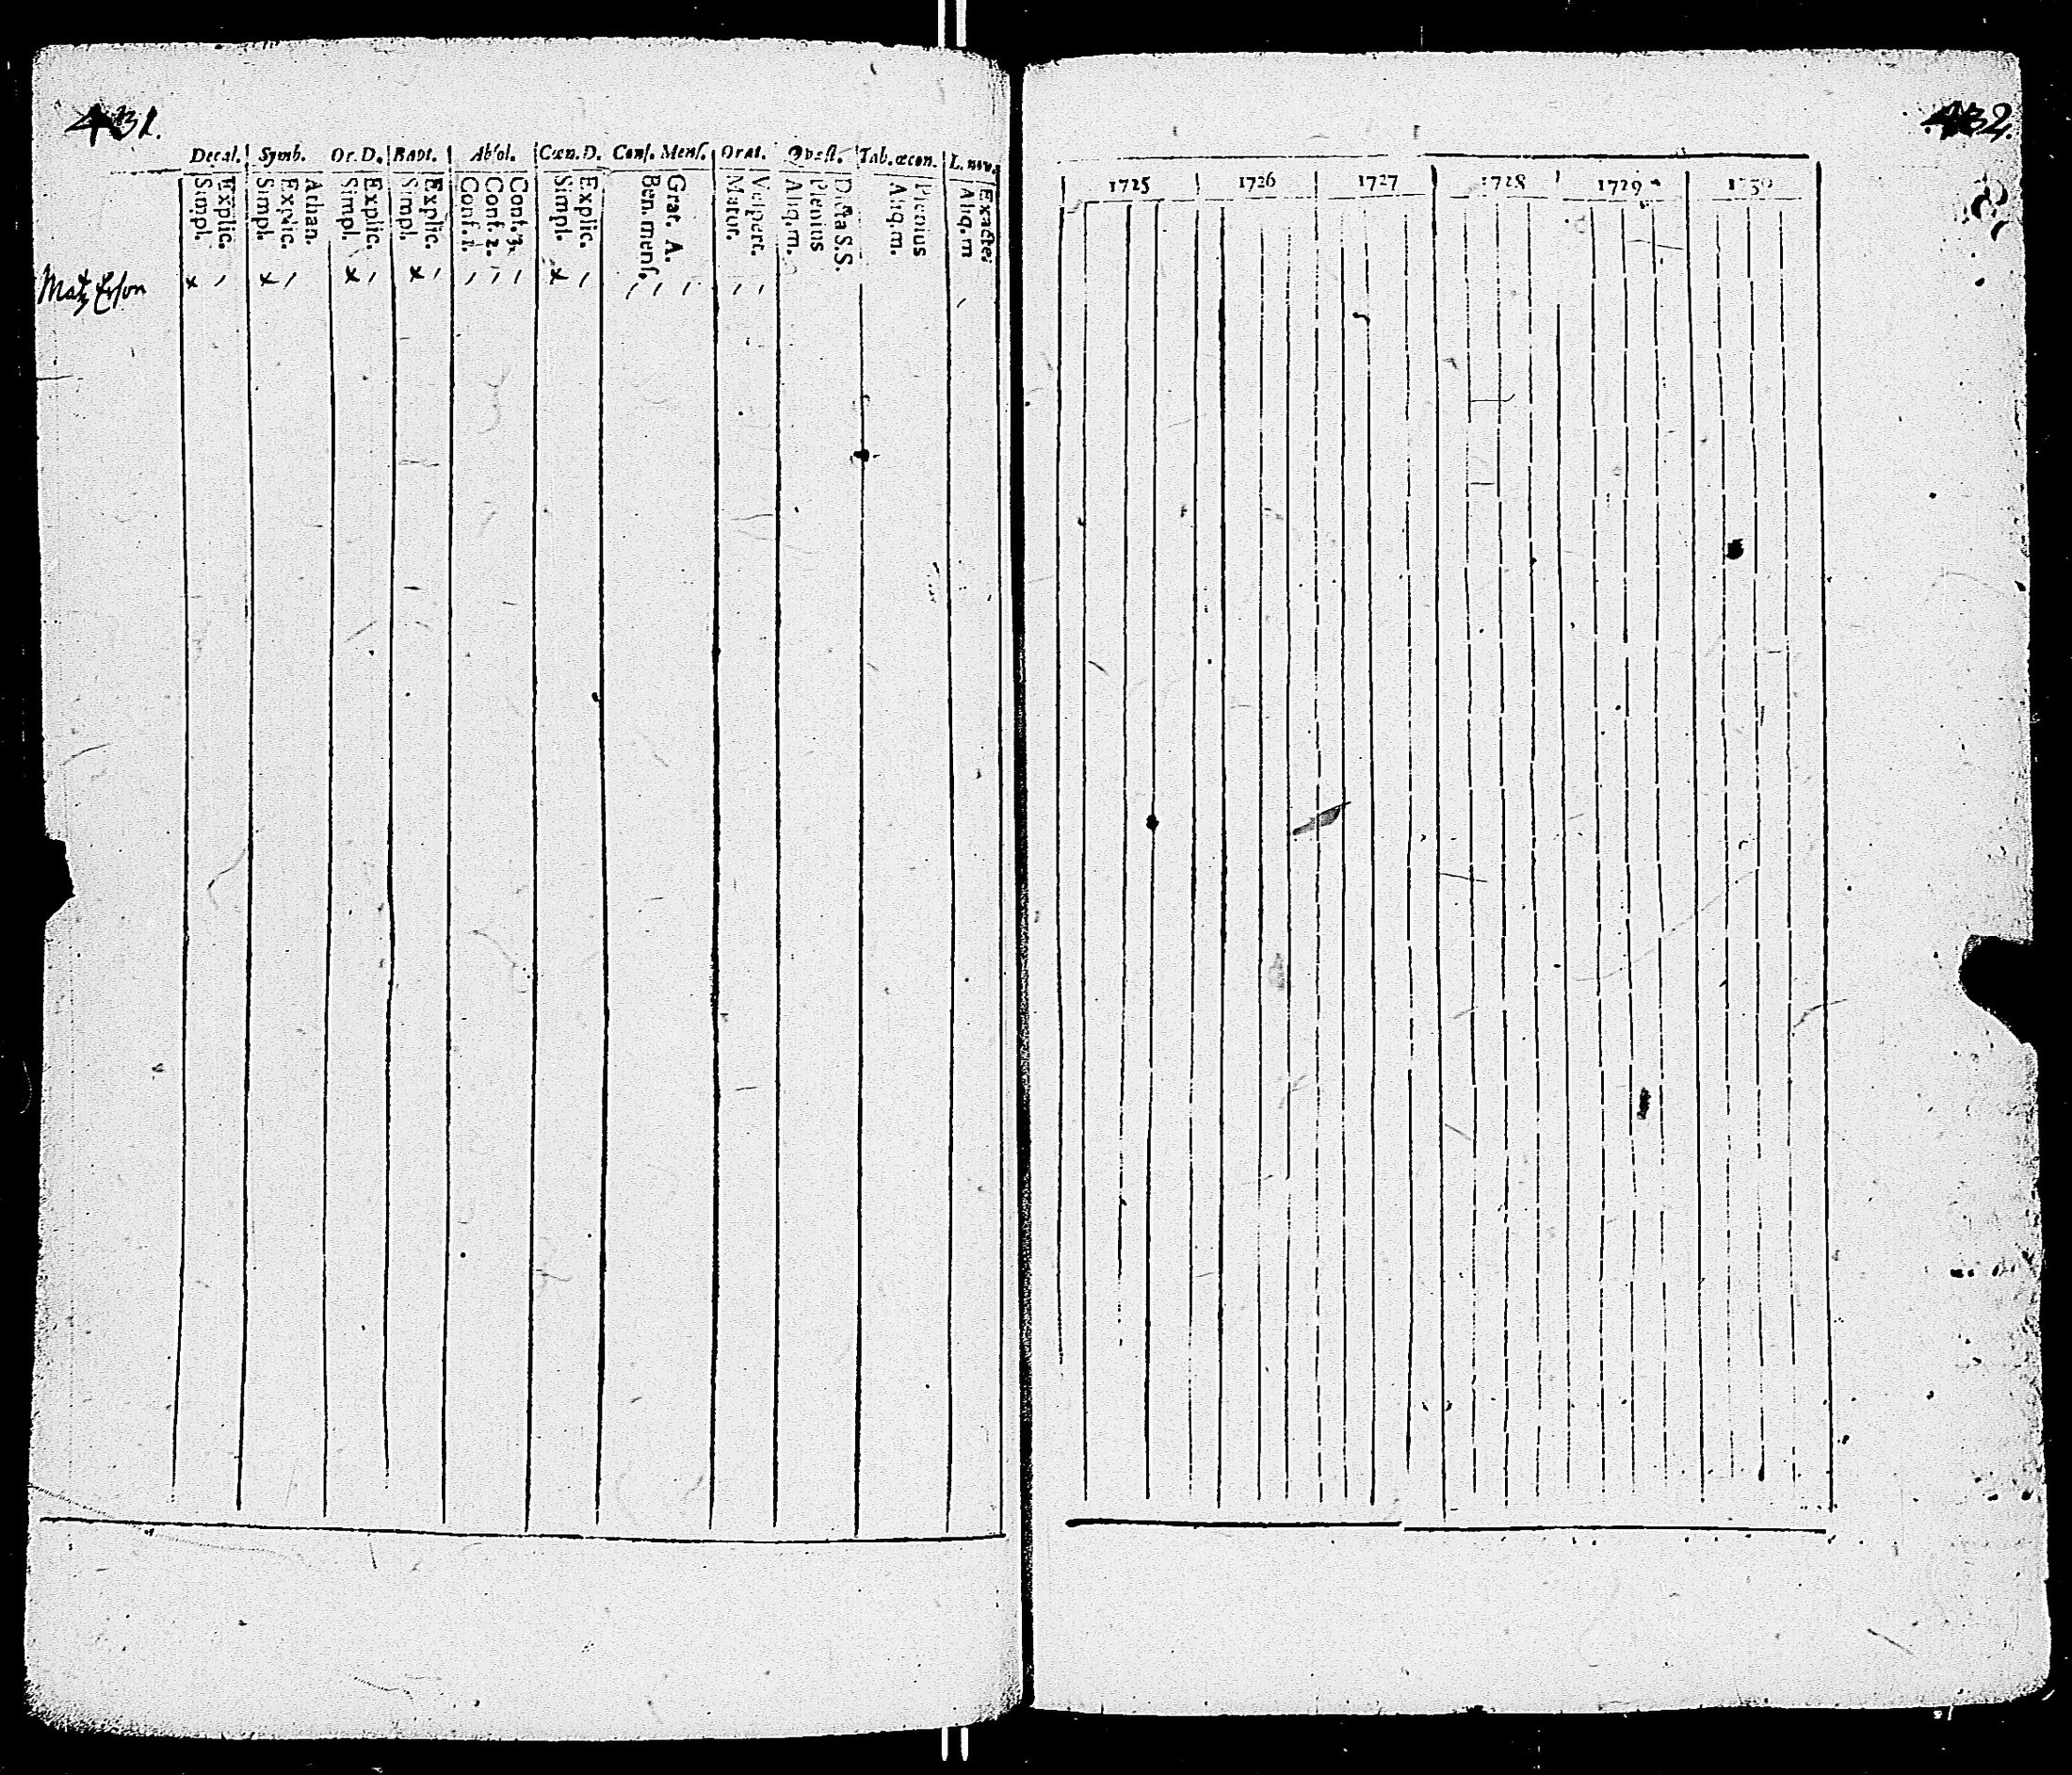 431.
Decal. Symb. Or. D. Bapt. Absol. Cœn. D. Conf. Mens. Orat. Qvæst. Tab. œcon. L. nov.
Simpl. Explic. Simpl. Explic. Athan. Simpl. Explic. Simpl. Explic. Conf. 1. Conf. 2. Conf. 3. Simpl. Explic. Ben. mens. Grat. A. Matut. Vespert. Aliq. m. Plenius Dicta S.S. Aliq. m. Plenius Aliq. m Exacte
Matz Erson
432.
1725 1726 1727 1728 1729 1730